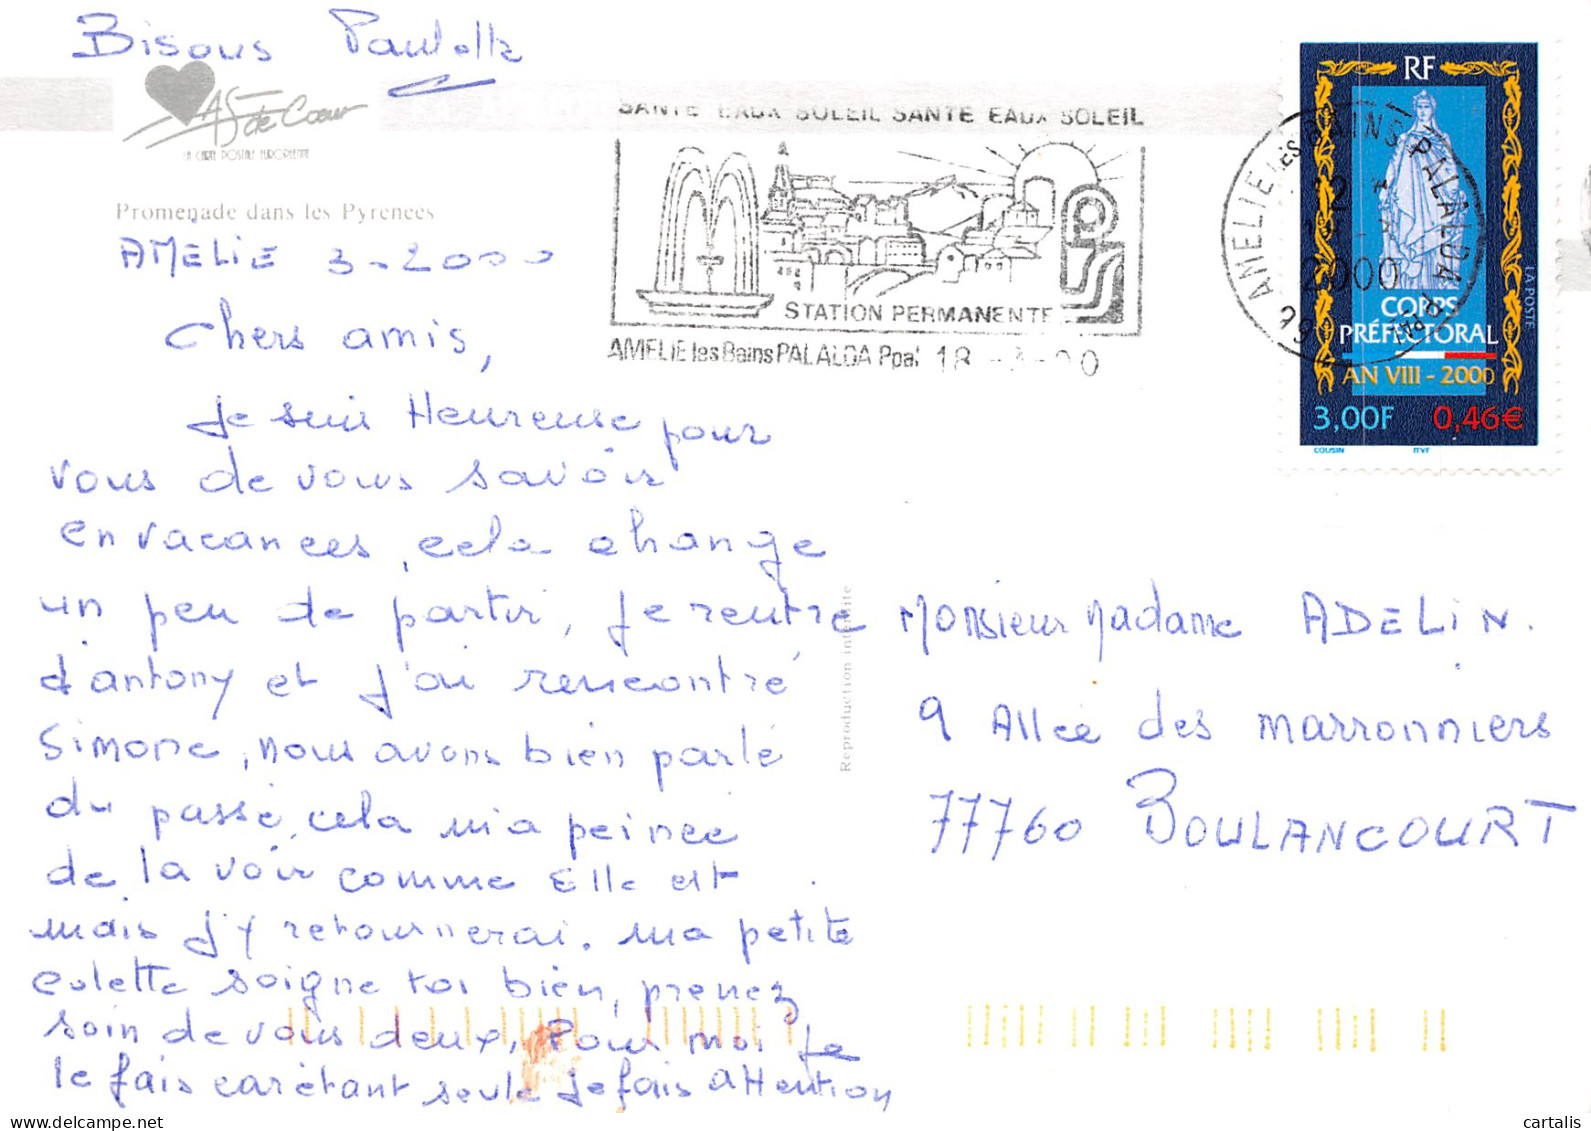 Bisous Paulette
AS de Cœur
LA CARTE POSTALE EUROPEENNE
Promenade dans les Pyrenees
AMELIE 3-2000
Chers amis,
Je suis Heureuse pour
vous de vous savoir
en vacances, cela change
un peu de partir, je rentre
d'antony et j'ai rencontré
Simone, nous avons bien parlé
du passé, cela m'a peinée
de la voir comme Elle est
mais j'y retournerai. ma petite
colette soigne toi bien, prenez
soin de vous deux, Pour moi je
le fais car étant seule je fais attention
SANTE EAUX SOLEIL SANTE EAUX SOLEIL
STATION PERMANENTE
AMELIE les Bains PALALDA Ppal 18 -3-00
AMELIE les BAINS PALALDA
2000
RF
LA POSTE
CORPS
PRÉFECTORAL
AN VIII - 2000
3,00F 0,46€
COUSIN ITVF
Reproduction interdite
Monsieur Madame ADELIN.
9 Allée des marronniers
77760 BOULANCOURT
cartalis
delcampe.net